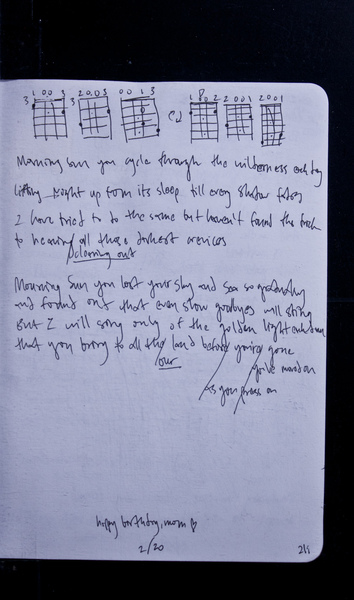 1 00 3 2003 0013 1802 2001 2001
3 3
Morning sun you cycle through the wilderness each day
lifting night up from its sleep till every shadow fades
I have tried to do the same but haven't found the trick
to hearing all those darkest crevices
cleaning out
Morning Sun you lost your sky and sea so gradually
and found out that even slow goodbyes will sting
But I will sing only of the golden light
that you bring to all the land before you're gone
our you've moved on
As you press on
happy birthday, mom ♡
2/20